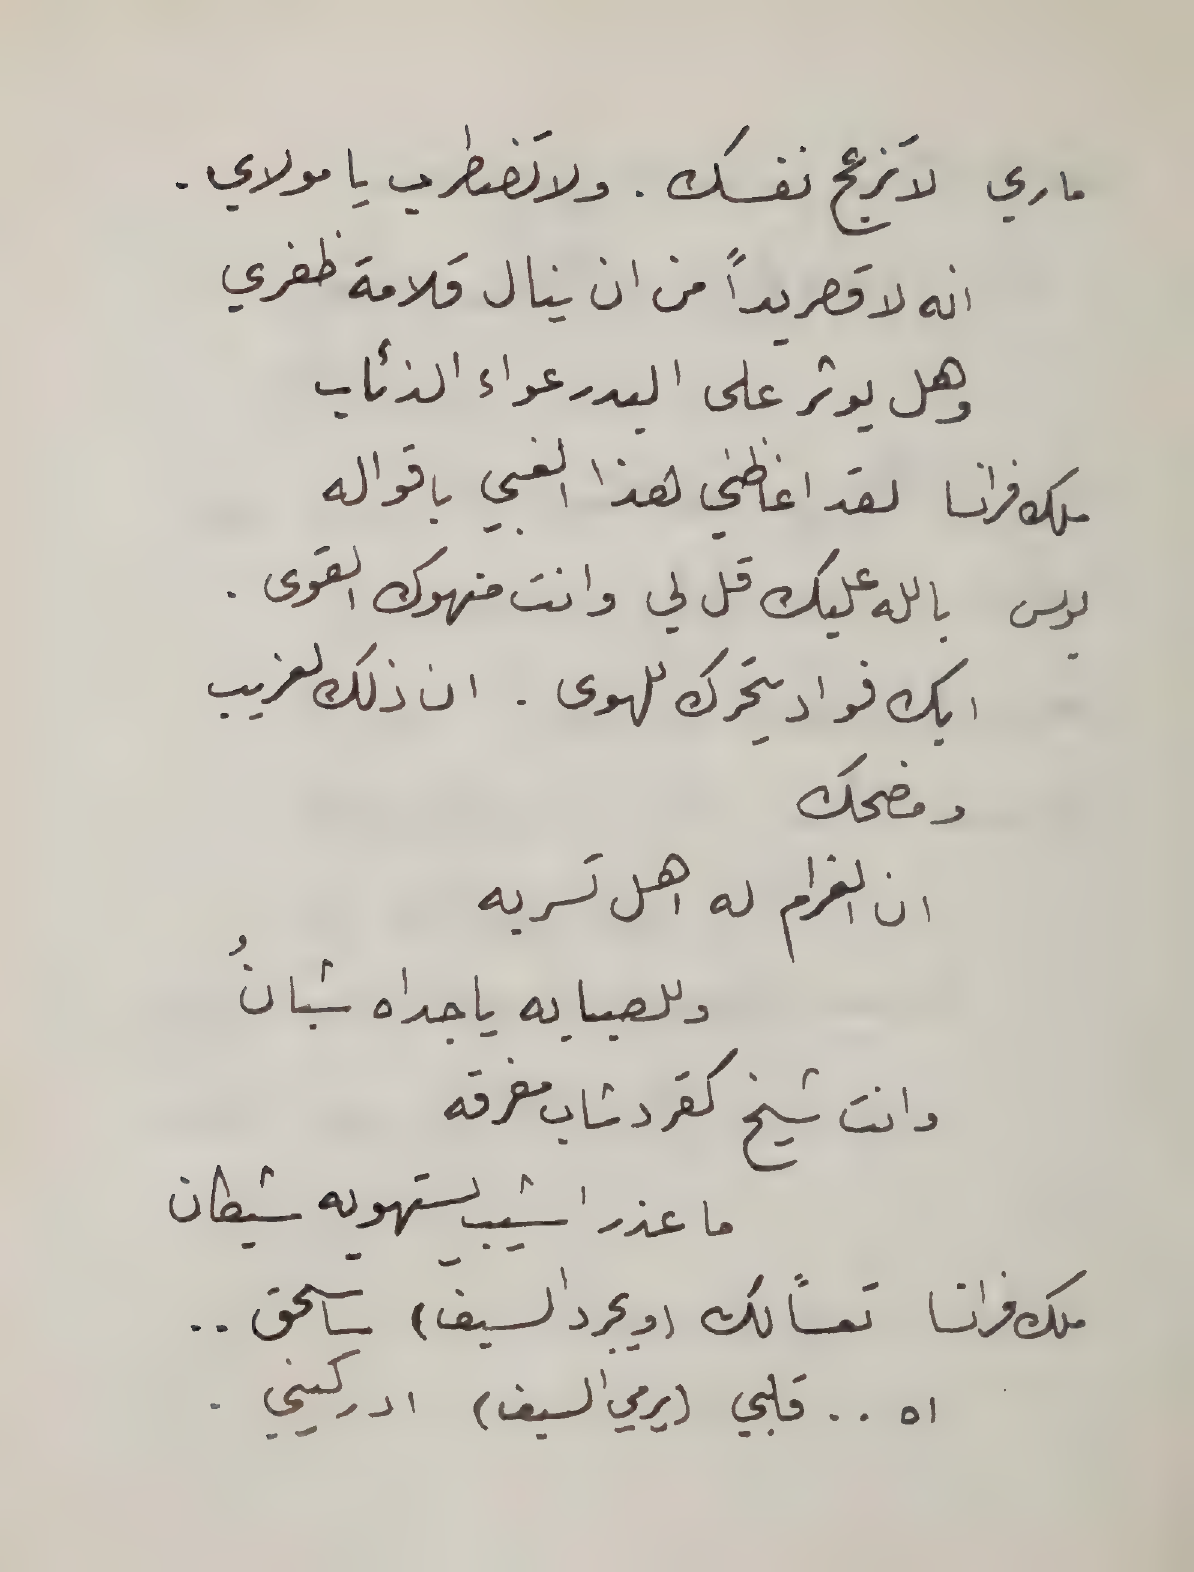 ماري لا تزعج نفسك . ولا تضطرب يا مولاي .
انه لا قصر يداً من ان ينال قلامة ظفري
وهل يوثر على البدر عواء الذئاب
ملك فرانسا لقد اغاظني هذا الغبي باقواله
يوس بالله عليك قل لي وانت منهوك القوى .
ابك فواد يتحرك للهوى . ان ذلك لغريب
ومضحك
ان الغرام له اهل تسر به
وللصبابه يا جداه شبانُ
وانت شيخ كقرد شاب مفرقه
ما عذر اشيب يستهويه شيطان
ملك فرانسا تعسًا لك (ويجرد السيف) ساسحق ..
اه .. قلبي (يرمي السيف) ادركيني .